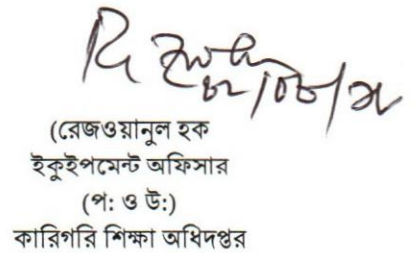 (রেজওয়ানুল হক
ইকুইপমেন্ট অফিসার
(প: ও উ:)
কারিগরি শিক্ষা অধিদপ্তর